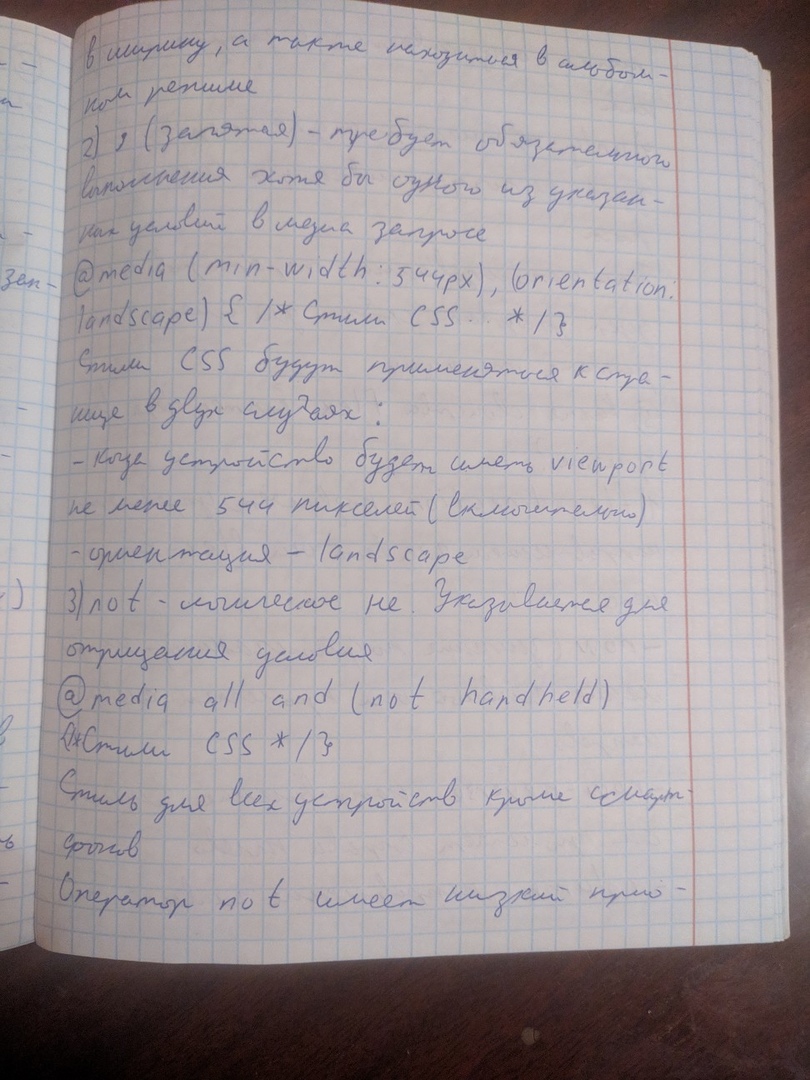 в ширину, а также находиться в альбом-
ном режиме
2) , (запятая) - требует обязательного
выполнения хотя бы одного из указан-
ных условий в медиа запросе
@media (min-width: 544px), (orientation:
landscape) { /* Стили CSS .. */}
Стили CSS будут применяться к стра-
нице в двух случаях:
- когда устройство будет иметь viewport
не менее 544 пикселей (включительно)
- ориентация - landscape
3) not - логическое не. Указывается для
отрицания условия
@media all and (not handheld)
{/*Стили CSS */}
Стиль для всех устройств кроме смарт-
фонов
Оператор not имеет низкий прио-